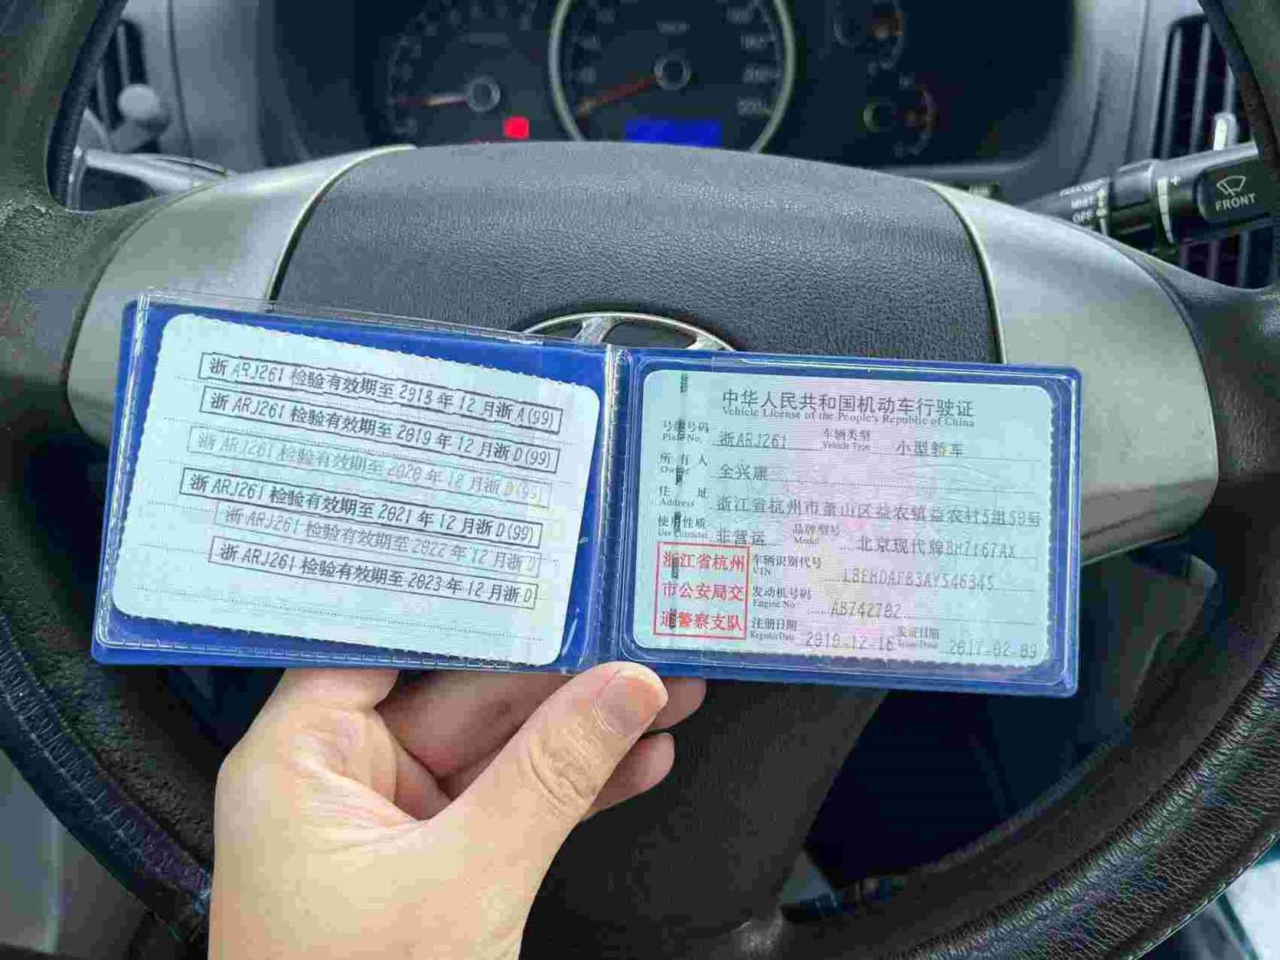 浙 ARJ261 检验有效期至 2018 年 12 月浙 A(99)
浙 ARJ261 检验有效期至 2019 年 12 月浙 D(99)
浙 ARJ261 检验有效期至 2020 年 12 月浙 D(99)
浙 ARJ261 检验有效期至 2021 年 12 月浙 D(99)
浙 ARJ261 检验有效期至 2022 年 12 月浙 D
浙 ARJ261 检验有效期至 2023 年 12 月浙 D
中华人民共和国机动车行驶证
Vehicle License of the People's Republic of China
号牌号码 浙ARJ261 车辆类型 小型轿车
Plate No. Vehicle Type
所有人 全兴康
Owner
住址 浙江省杭州市萧山区益农镇益农村5组59号
Address
使用性质 非营运 品牌型号 北京现代牌BH7167AX
Use Character Model
浙江省杭州
市公安局交
通警察支队
车辆识别代号
VIN
发动机号码 AB742702
Engine No
注册日期 2010-12-16 发证日期 2017-02-09
Register Date Issue Date
MIST
OFF
FRONT